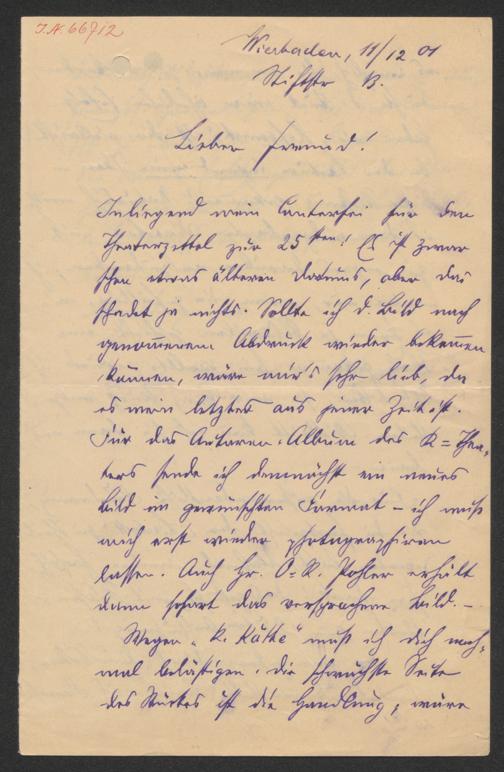 J.N. 66712
Wiesbaden, 11/12 01
Stiftstr 13.
Lieber Freund!
Inliegend mein Conterfei für den
Theaterzettel zur 25sten! Es ist zwar
schon etwas älteren Datums, aber das
schadet ja nichts. Sollte ich d. Bild nach
genommenem Abdruck wieder bekommen
können, wäre mir's sehr lieb, da
es mein letztes aus jener Zeit ist.
Für das Autoren-Album des R=Thea-
ters sende ich demnächst ein neues
Bild im gewünschten Format – ich muß
mich erst wieder photographiren
lassen. Auch Hr. O=R. Pohler erhält
dann sofort das versprochene Bild. –
Wegen „K. Käthe" muß ich dich noch-
mal belästigen. Die schwächste Seite
des Stückes ist die Handlung; wäre